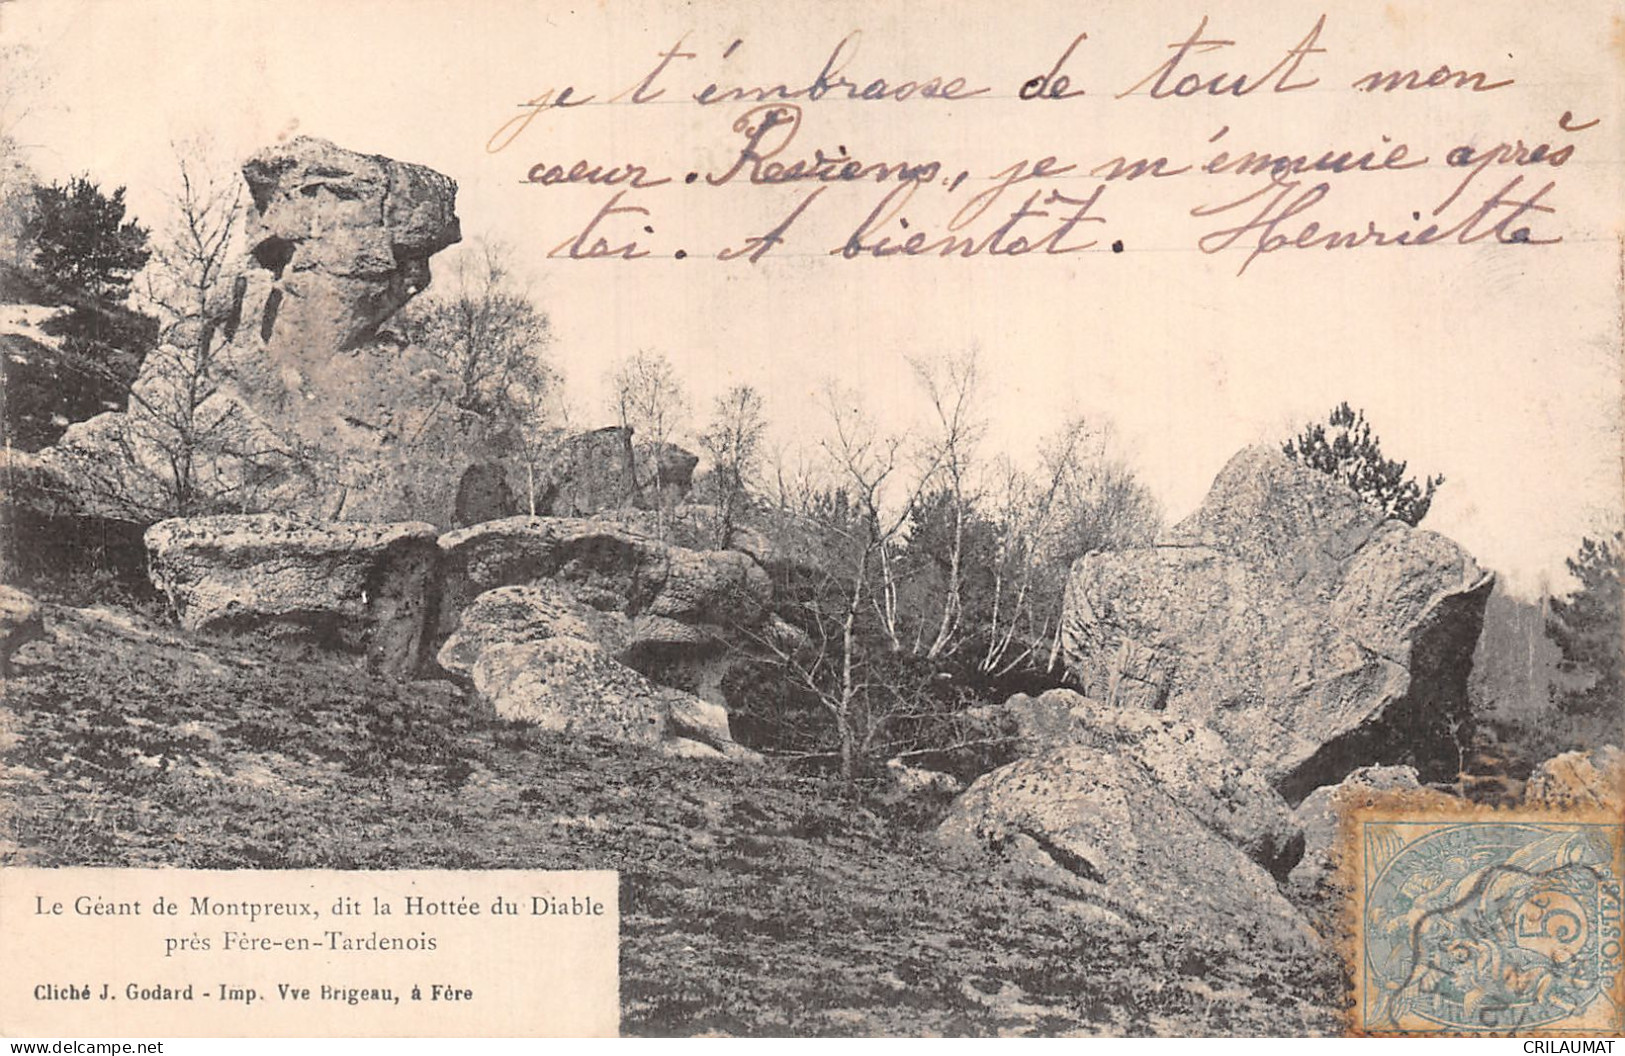 je t'émbrasse de tout mon
coeur. Reviens, je m'ennuie après
toi. A bientôt. Henriette
Le Géant de Montpreux, dit la Hottée du Diable
près Fère-en-Tardenois
Cliché J. Godard - Imp. Vve Brigeau, à Fère
5
POSTES
delcampe.net
CRILAUMAT